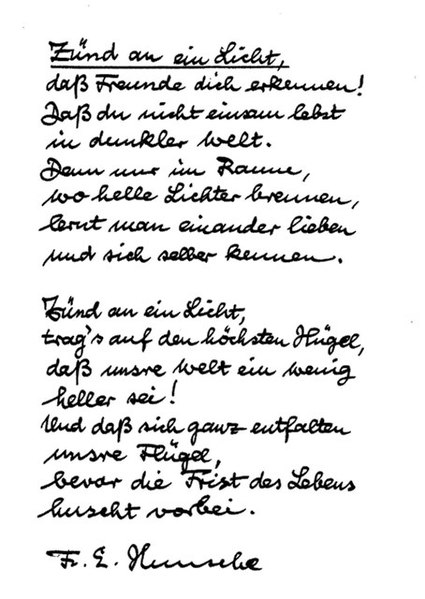 Zünd an ein Licht,
daß Freunde dich erkennen!
Daß du nicht einsam lebst
in dunkler Welt.
Denn nur im Raume,
wo helle Lichter brennen,
lernt man einander lieben
und sich selber kennen.
Zünd an ein Licht,
trag's auf den höchsten Hügel,
daß unsre Welt ein wenig
heller sei!
Und daß sich ganz entfalten
unsre Flügel,
bevor die Frist des Lebens
huscht vorbei.
Fr. E. Hunsche